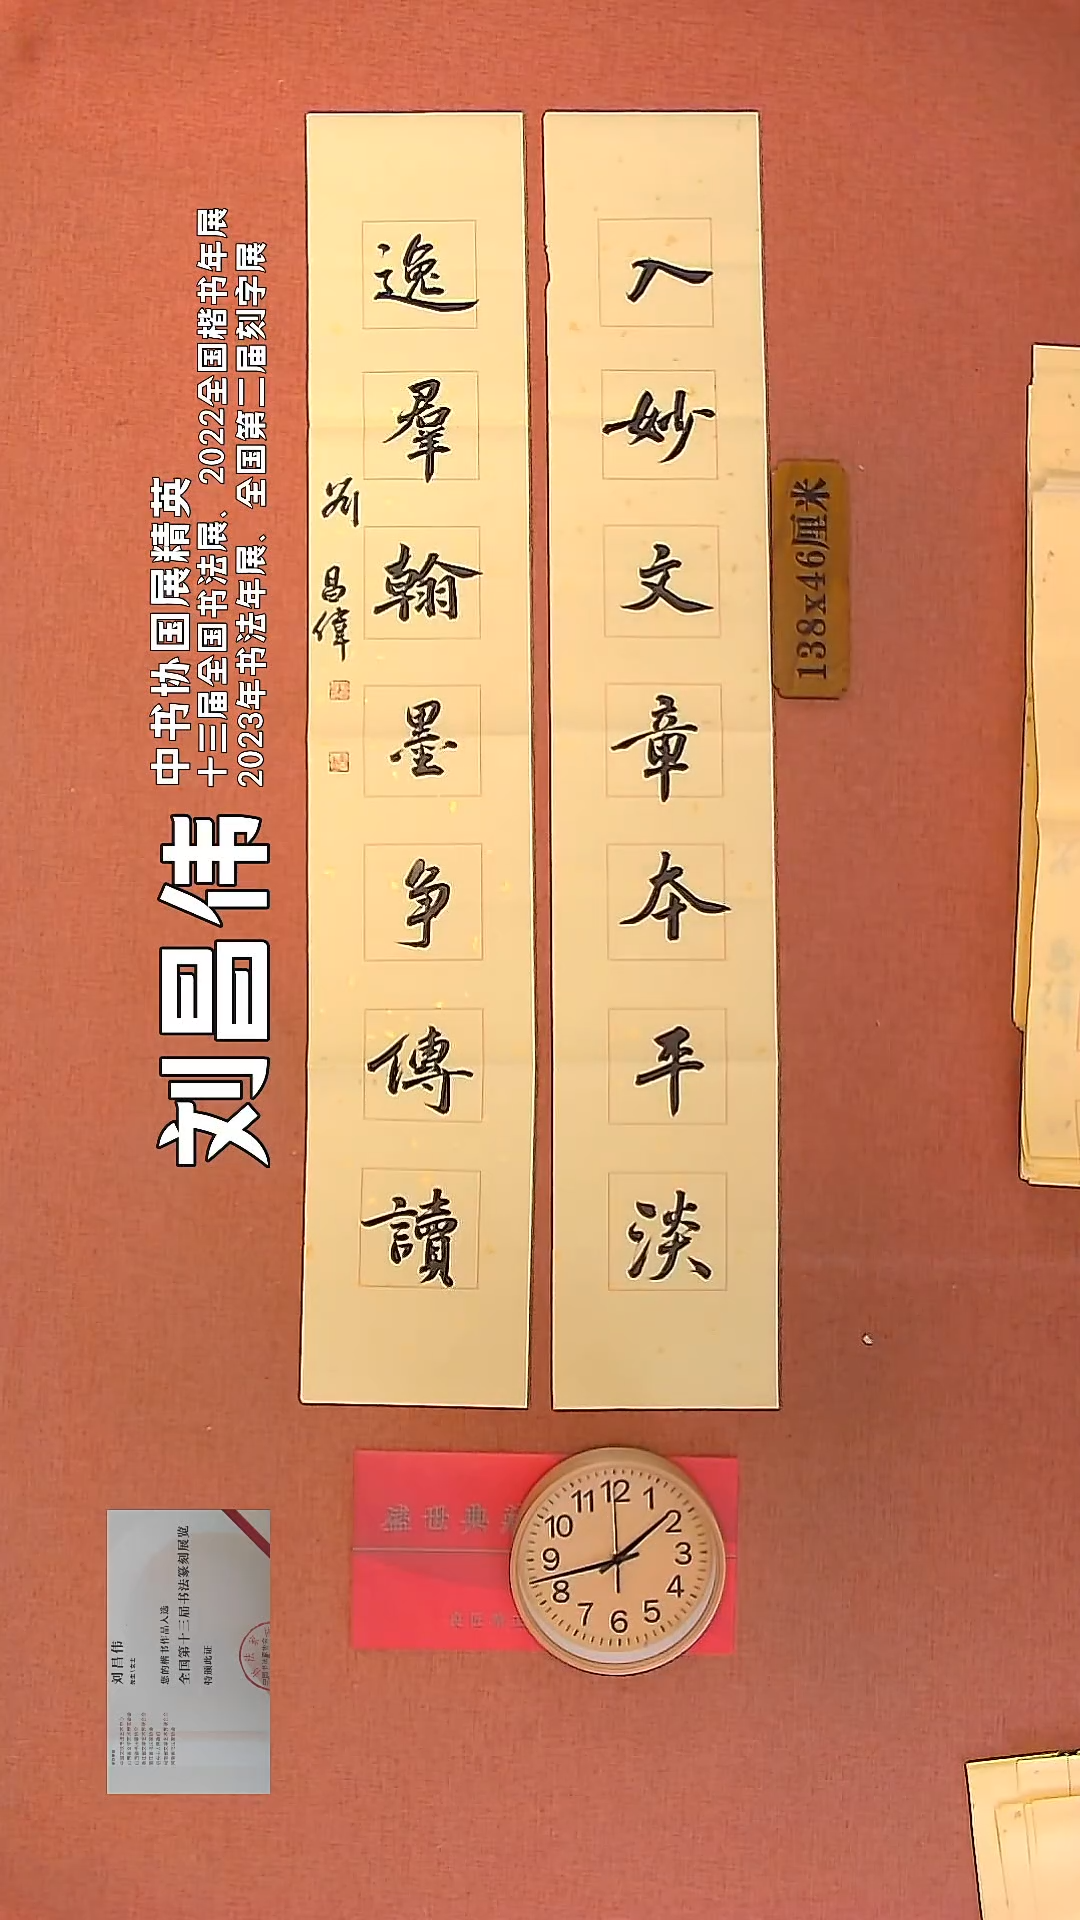 入妙文章本平淡
逸羣翰墨争傳讀
劉昌偉
138x46厘米
刘昌伟
中书协国展精英
十三届全国书法展、2022全国楷书年展
2023年书法年展、全国第二届刻字展
盛世典
12
1
2
3
4
5
6
7
8
9
10
11
刘昌伟
您的楷书作品入选
全国第十三届书法篆刻展览
特颁此证